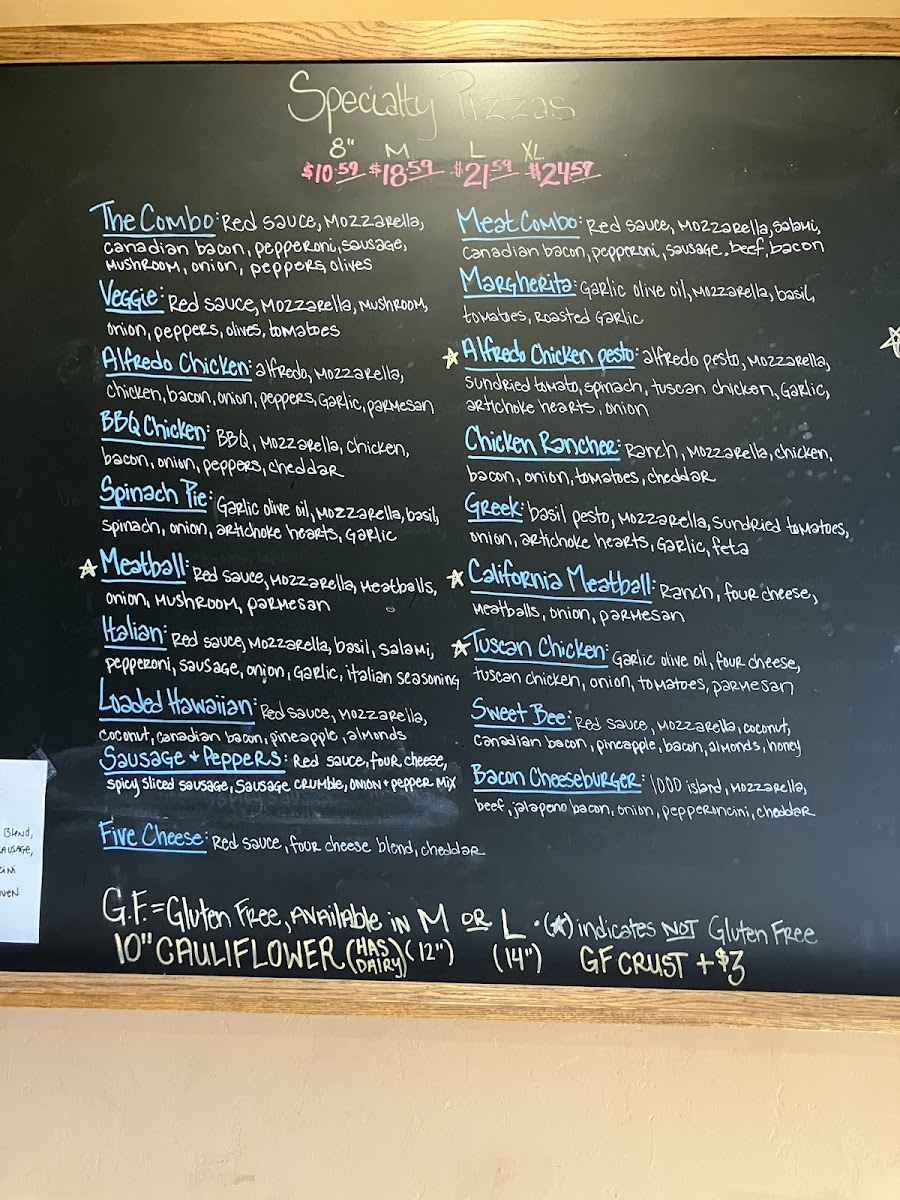 Specialty Pizzas
8" M L XL
$10.59 $18.59 $21.59 $24.59
The Combo: Red sauce, Mozzarella,
canadian bacon, pepperoni, sausage,
Mushroom, onion, peppers, olives
Veggie: Red sauce, Mozzarella, Mushroom,
onion, peppers, olives, tomatoes
Alfredo Chicken: alfredo, Mozzarella,
chicken, bacon, onion, peppers, garlic, parmesan
BBQ Chicken: BBQ, Mozzarella, chicken,
bacon, onion, peppers, cheddar
Spinach Pie: Garlic olive oil, Mozzarella, basil,
spinach, onion, artichoke hearts, garlic
☆ Meatball: Red sauce, Mozzarella, Meatballs,
onion, Mushroom, parmesan
Italian: Red sauce, Mozzarella, basil, salami,
pepperoni, sausage, onion, garlic, italian seasoning
Loaded Hawaiian: Red sauce, Mozzarella,
coconut, canadian bacon, pineapple, almonds
Sausage + Peppers: Red sauce, four cheese,
spicy sliced sausage, sausage crumble, onion + pepper mix
Five Cheese: Red sauce, four cheese blend, cheddar
Meat Combo: Red sauce, Mozzarella, salami,
canadian bacon, pepperoni, sausage, beef, bacon
Margherita: Garlic olive oil, Mozzarella, basil,
tomatoes, Roasted garlic
☆ Alfredo Chicken pesto: alfredo pesto, Mozzarella,
sundried tomato, spinach, tuscan chicken, garlic,
artichoke hearts, onion
Chicken Rancher: Ranch, Mozzarella, chicken,
bacon, onion, tomatoes, cheddar
Greek: basil pesto, Mozzarella, sundried tomatoes,
onion, artichoke hearts, garlic, feta
☆ California Meatball: Ranch, four cheese,
Meatballs, onion, parmesan
☆ Tuscan Chicken: Garlic olive oil, four cheese,
tuscan chicken, onion, tomatoes, parmesan
Sweet Bee: Red sauce, Mozzarella, coconut,
Canadian bacon, pineapple, bacon, almonds, honey
Bacon Cheeseburger: 1000 island, Mozzarella,
beef, jalapeno bacon, onion, pepperoncini, cheddar
G.F. = Gluten Free, Available in M or L • (☆) indicates NOT Gluten Free
10" CAULIFLOWER (HAS DAIRY) (12") (14") GF CRUST + $3
Blend,